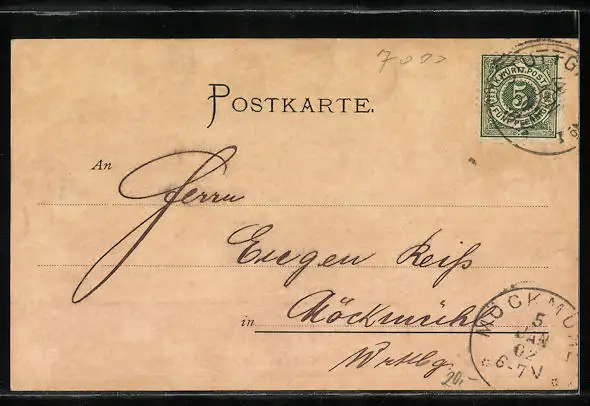 7000
POSTKARTE.
K. WÜRTT. POST
5
FÜNF PFENNIG
STUTTG
An
Herrn
Eugen Reiß
in Möckmühl
Wrttbg.
MÖCKMÜHL
5
JAN
02
6-7N
20,-